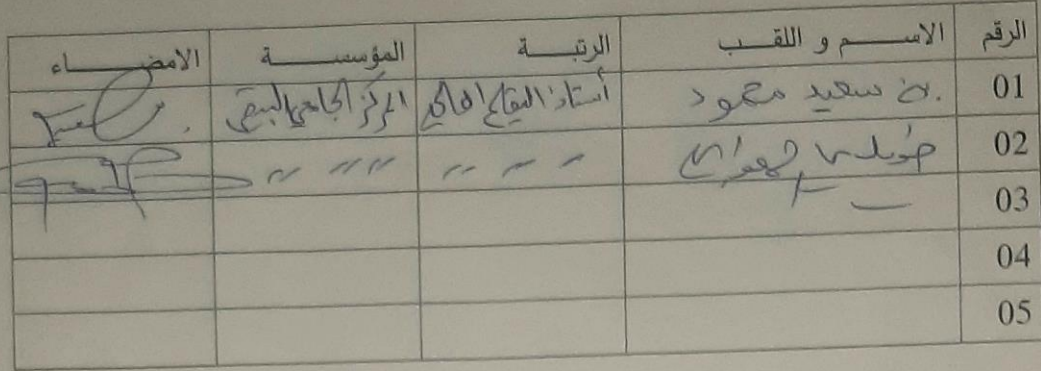 الرقم الاســـم و اللقـــب الرتبـــة المؤسســـة الامضـــاء
01 بن سعيد محمود أستاذ التعليم العالي المركز الجامعي
02 〃 〃 〃 〃 〃 〃
03
04
05